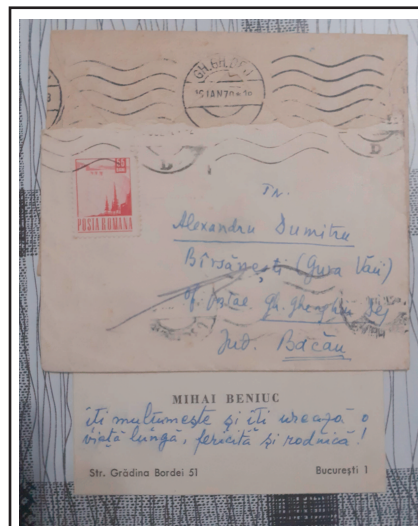 GH. GH. DEJ
15 IAN 70
POSTA ROMANA
Alexandru Dumitru
Bîrsănești (Gura Văii)
of. Gh. Gheorghiu Dej
Jud. Bacău
MIHAI BENIUC
îti multumește și îti urează o
viață lungă, fericită și rodnică!
Str. Grădina Bordei 51 București 1